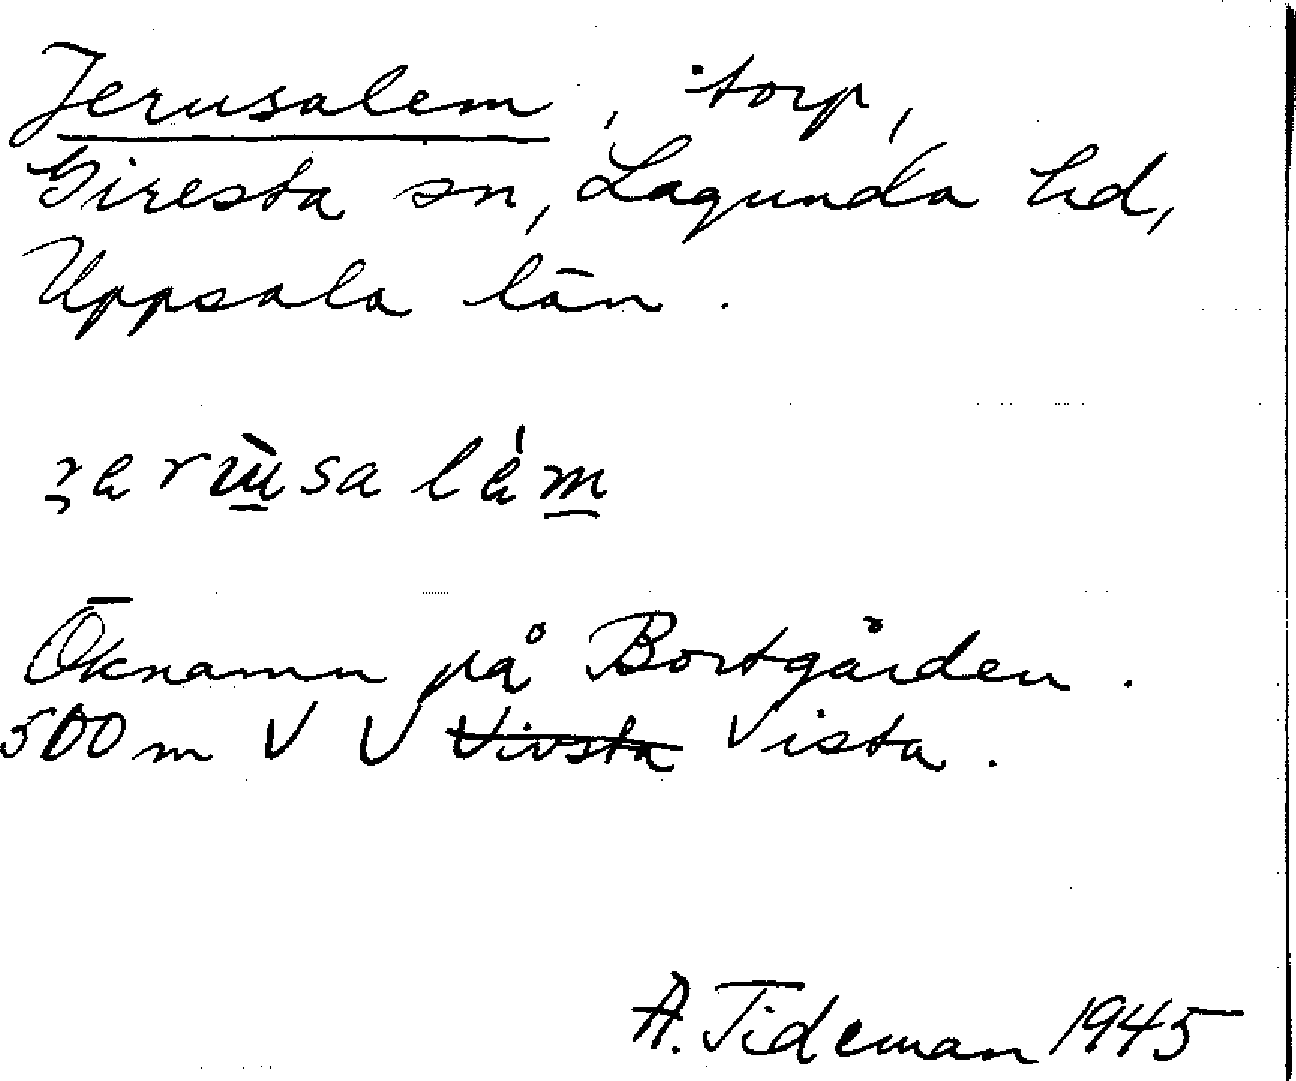 Jerusalem, torp,
Giresta sn, Lagunda hd,
Uppsala län.
Öknamn på Bortgården.
500 m V U Vivsta Vista.
A. Tideman 1945